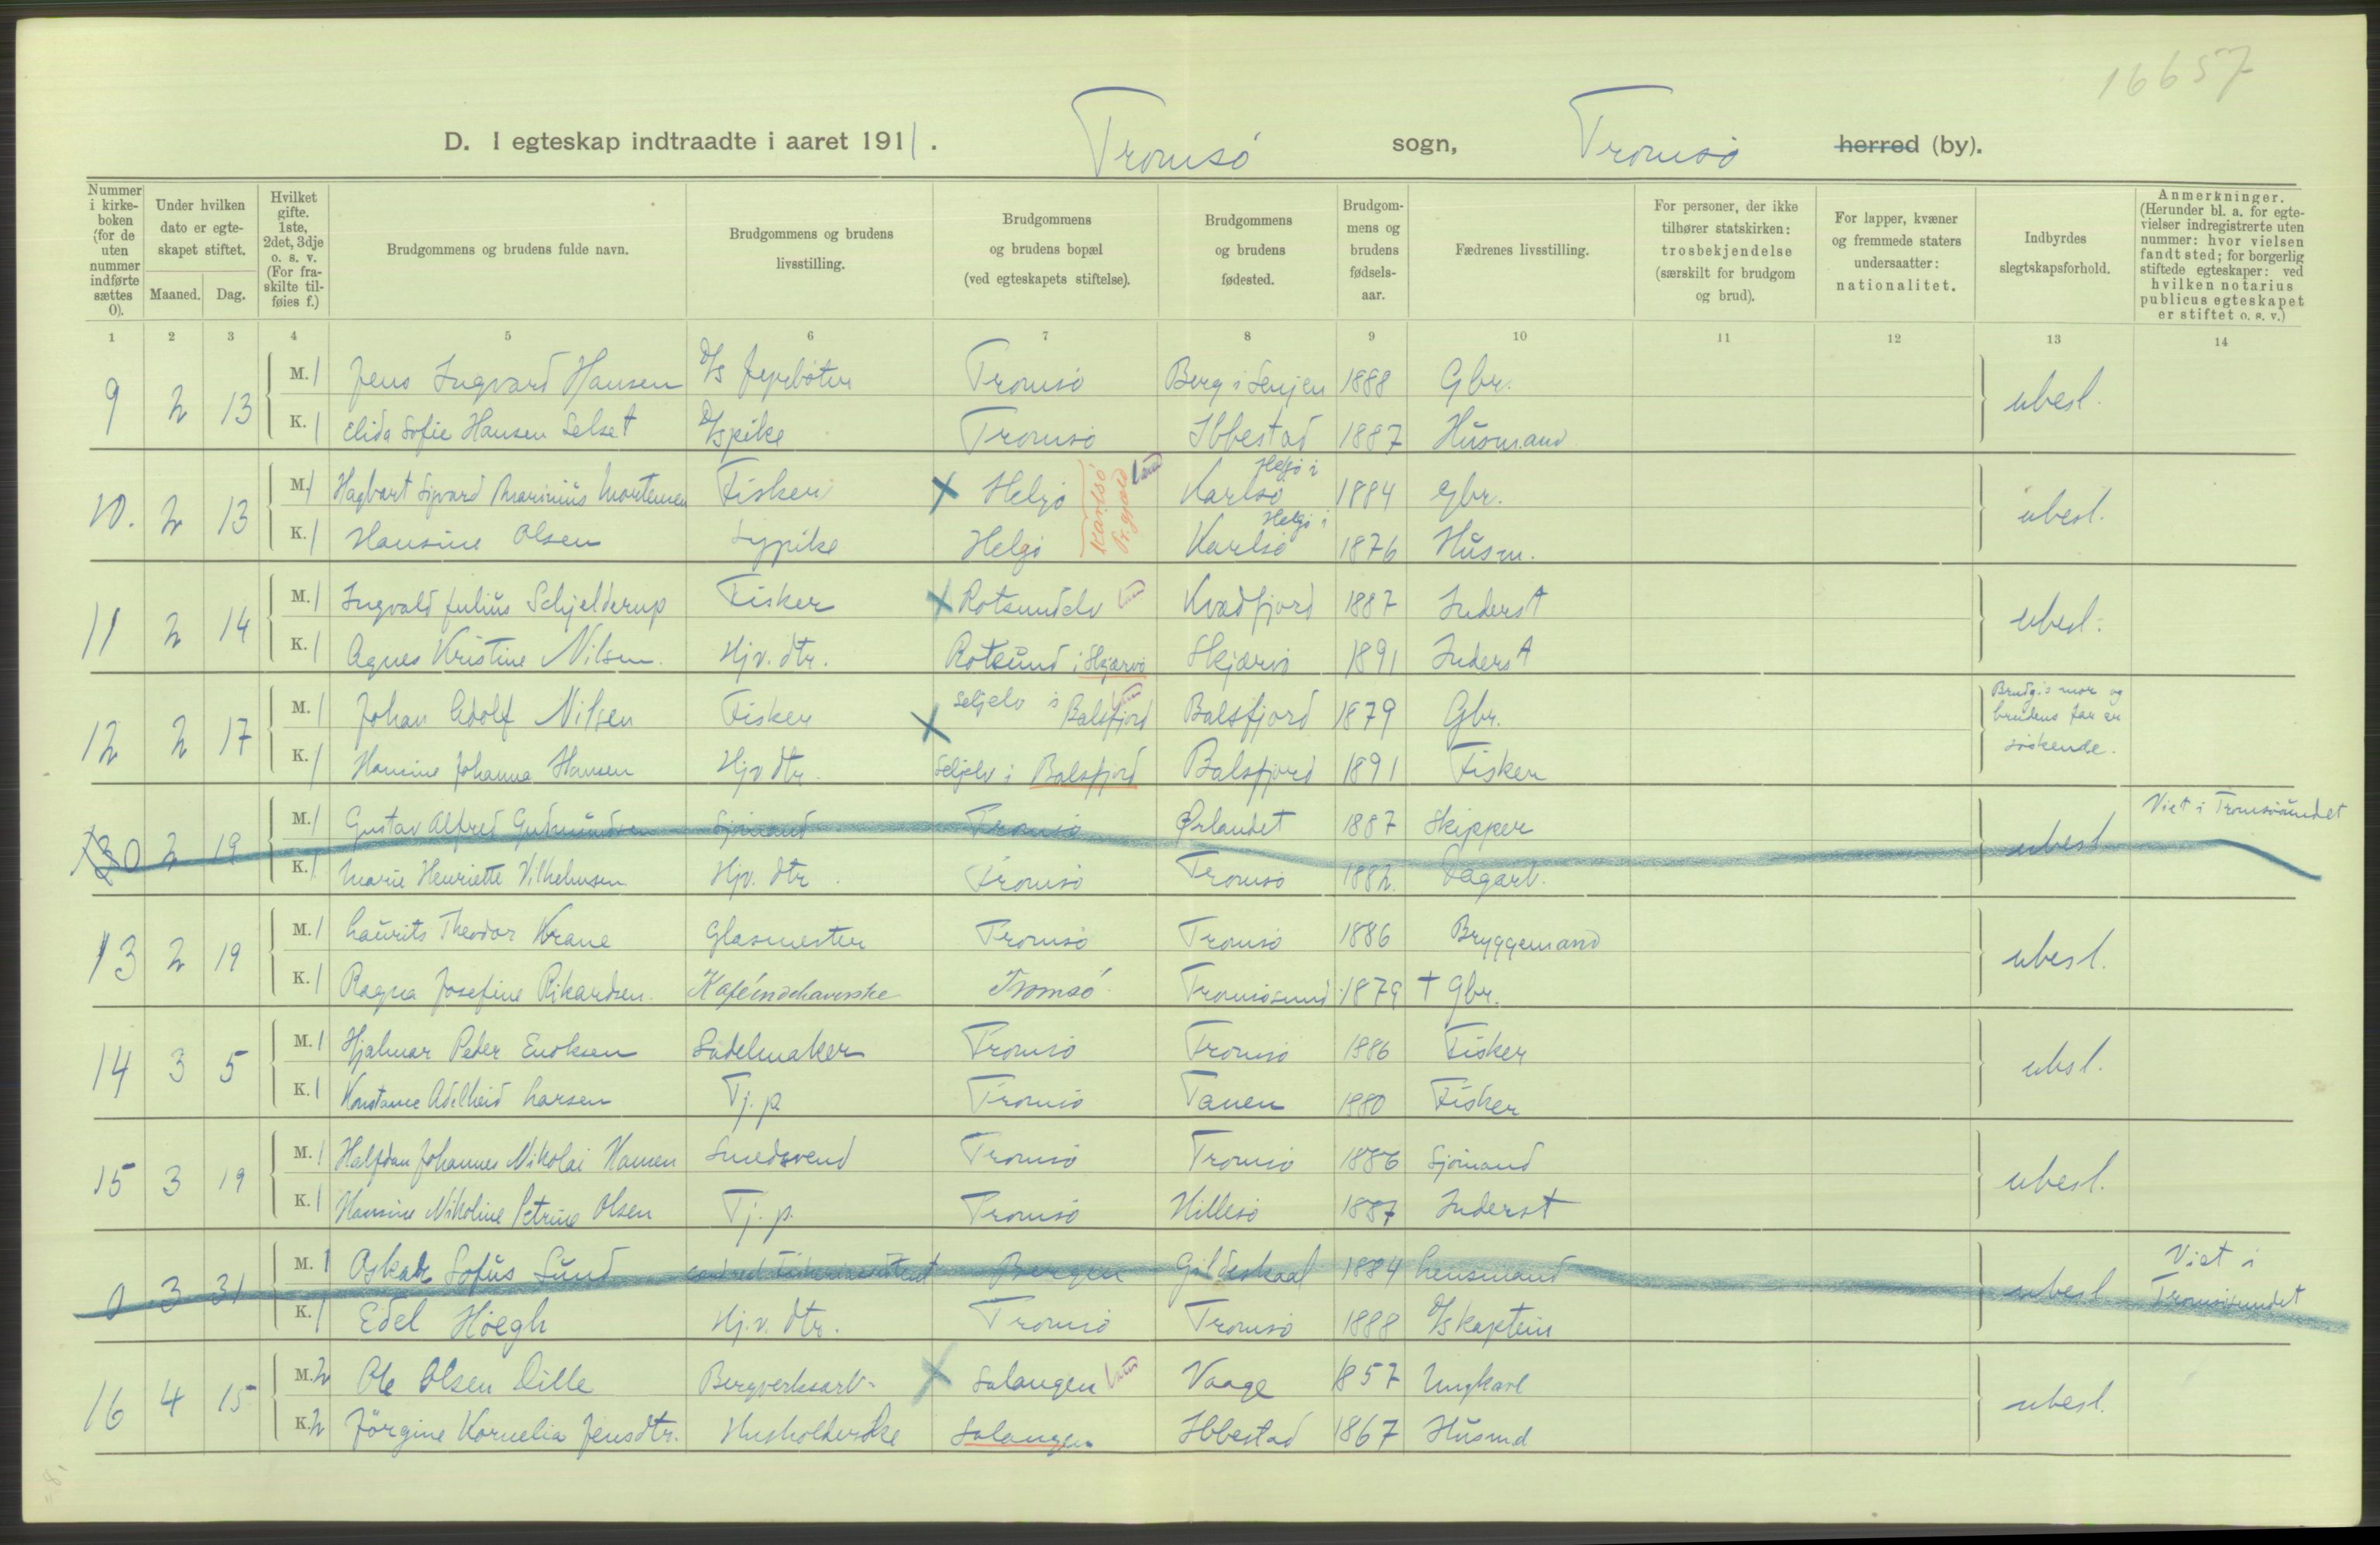 16657
D. I egteskap indtraadte i aaret 1911. Tromsø sogn, Tromsø herred (by).
Nummer i kirkeboken (for de uten nummer indførte sættes 0).
Under hvilken dato er egteskapet stiftet.
Maaned. Dag.
Hvilket gifte. 1ste, 2det, 3dje o. s. v. (For fraskilte tilføies f.)
Brudgommens og brudens fulde navn.
Brudgommens og brudens livsstilling.
Brudgommens og brudens bopæl (ved egteskapets stiftelse).
Brudgommens og brudens fødested.
Brudgommens og brudens fødselsaar.
Fædrenes livsstilling.
For personer, der ikke tilhører statskirken: trosbekjendelse (særskilt for brudgom og brud).
For lapper, kvæner og fremmede staters undersaatter: nationalitet.
Indbyrdes slegtskapsforhold.
Anmerkninger. (Herunder bl. a. for egtevielser indregistrerte uten nummer: hvor vielsen fandt sted; for borgerlig stiftede egteskaper: ved hvilken notarius publicus egteskapet er stiftet o. s. v.)
1 2 3 4 5 6 7 8 9 10 11 12 13 14
9 2 13 M. 1 Jens Ingvard Hansen D/s fyrbøter Tromsø Berg i Senjen 1888 Gbr. ubesl.
K. 1 Elida Sofie Hansen Selset D/spike Tromsø Ibbestad 1887 Husmand
10. 2 13 M. 1 Hagbart Sigvard Marinius Mortensen Fisker X Helgø Karlsø Pr.gjeld Land Helgø i Karlsø 1884 gbr. ubesl.
K. 1 Hansine Olsen Sypike Helgø Helgø i Karlsø 1876 Husm.
11 2 14 M. 1 Ingvald Julius Schjelderup Fisker X Rotsundelv Land Kvædfjord 1887 Inderst ubesl.
K. 1 Agnes Kristine Nilsen. Hjv. dtr. Rotsund i Skjærvø Skjærvø 1891 Inderst
12 2 17 M. 1 Johan Adolf Nilsen Fisker X Seljelv i Balsfjord Land Balsfjord 1879 Gbr. Brudg.s mor og brudens far er søskende.
K. 1 Hansine Johanna Hansen Hjv dtr. Seljelv i Balsfjord Balsfjord 1891 Fisker
0 2 19 M. 1 Gustav Alfred Gudmundsen Sjømand Tromsø Ørlandet 1887 Skipper ubesl. Viet i Tromsøsundet
K. 1 Marie Henriette Vilhelmsen Hjv. dtr. Tromsø Tromsø 1882. Dagarb.
13 2 19 M. 1 Laurits Theodor Krane Glasmester Tromsø Tromsø 1886 Bryggemand ubesl.
K. 1 Ragna Josefine Rikardsen. Kaféindehaverske Tromsø Tromsøsund 1879 † Gbr.
14 3 5 M. 1 Hjalmar Peder Enoksen Sadelmaker Tromsø Tromsø 1886 Fisker ubsl.
K. 1 Konstance Adelheid Larsen Tj. p. Tromsø Tanen 1880 Fisker
15 3 19 M. 1 Halfdan Johannes Nikolai Hansen Smedsvend Tromsø Tromsø 1886 Sjømand ubesl.
K. 1 Hansine Nikoline Petrine Olsen Tj. p. Tromsø Hillesø 1887 Inderst
0 3 31 M. 1 Oskar Sofus Sund Bergen Gildeskaal 1884 Lensmand ubesl. Viet i Tromsøsundet
K. 1 Edel Høegh Hj.v. dtr. Tromsø Tromsø 1888 D/s kaptein
16 4 15 M. 2 Ole Olsen Dille Bergverksarb. X Salangen Land Vaage 1857 Ungkarl ubesl.
K. 2 Jørgine Kornelia Jensdtr. Husholderske Salangen Ibbestad 1867 Husmd